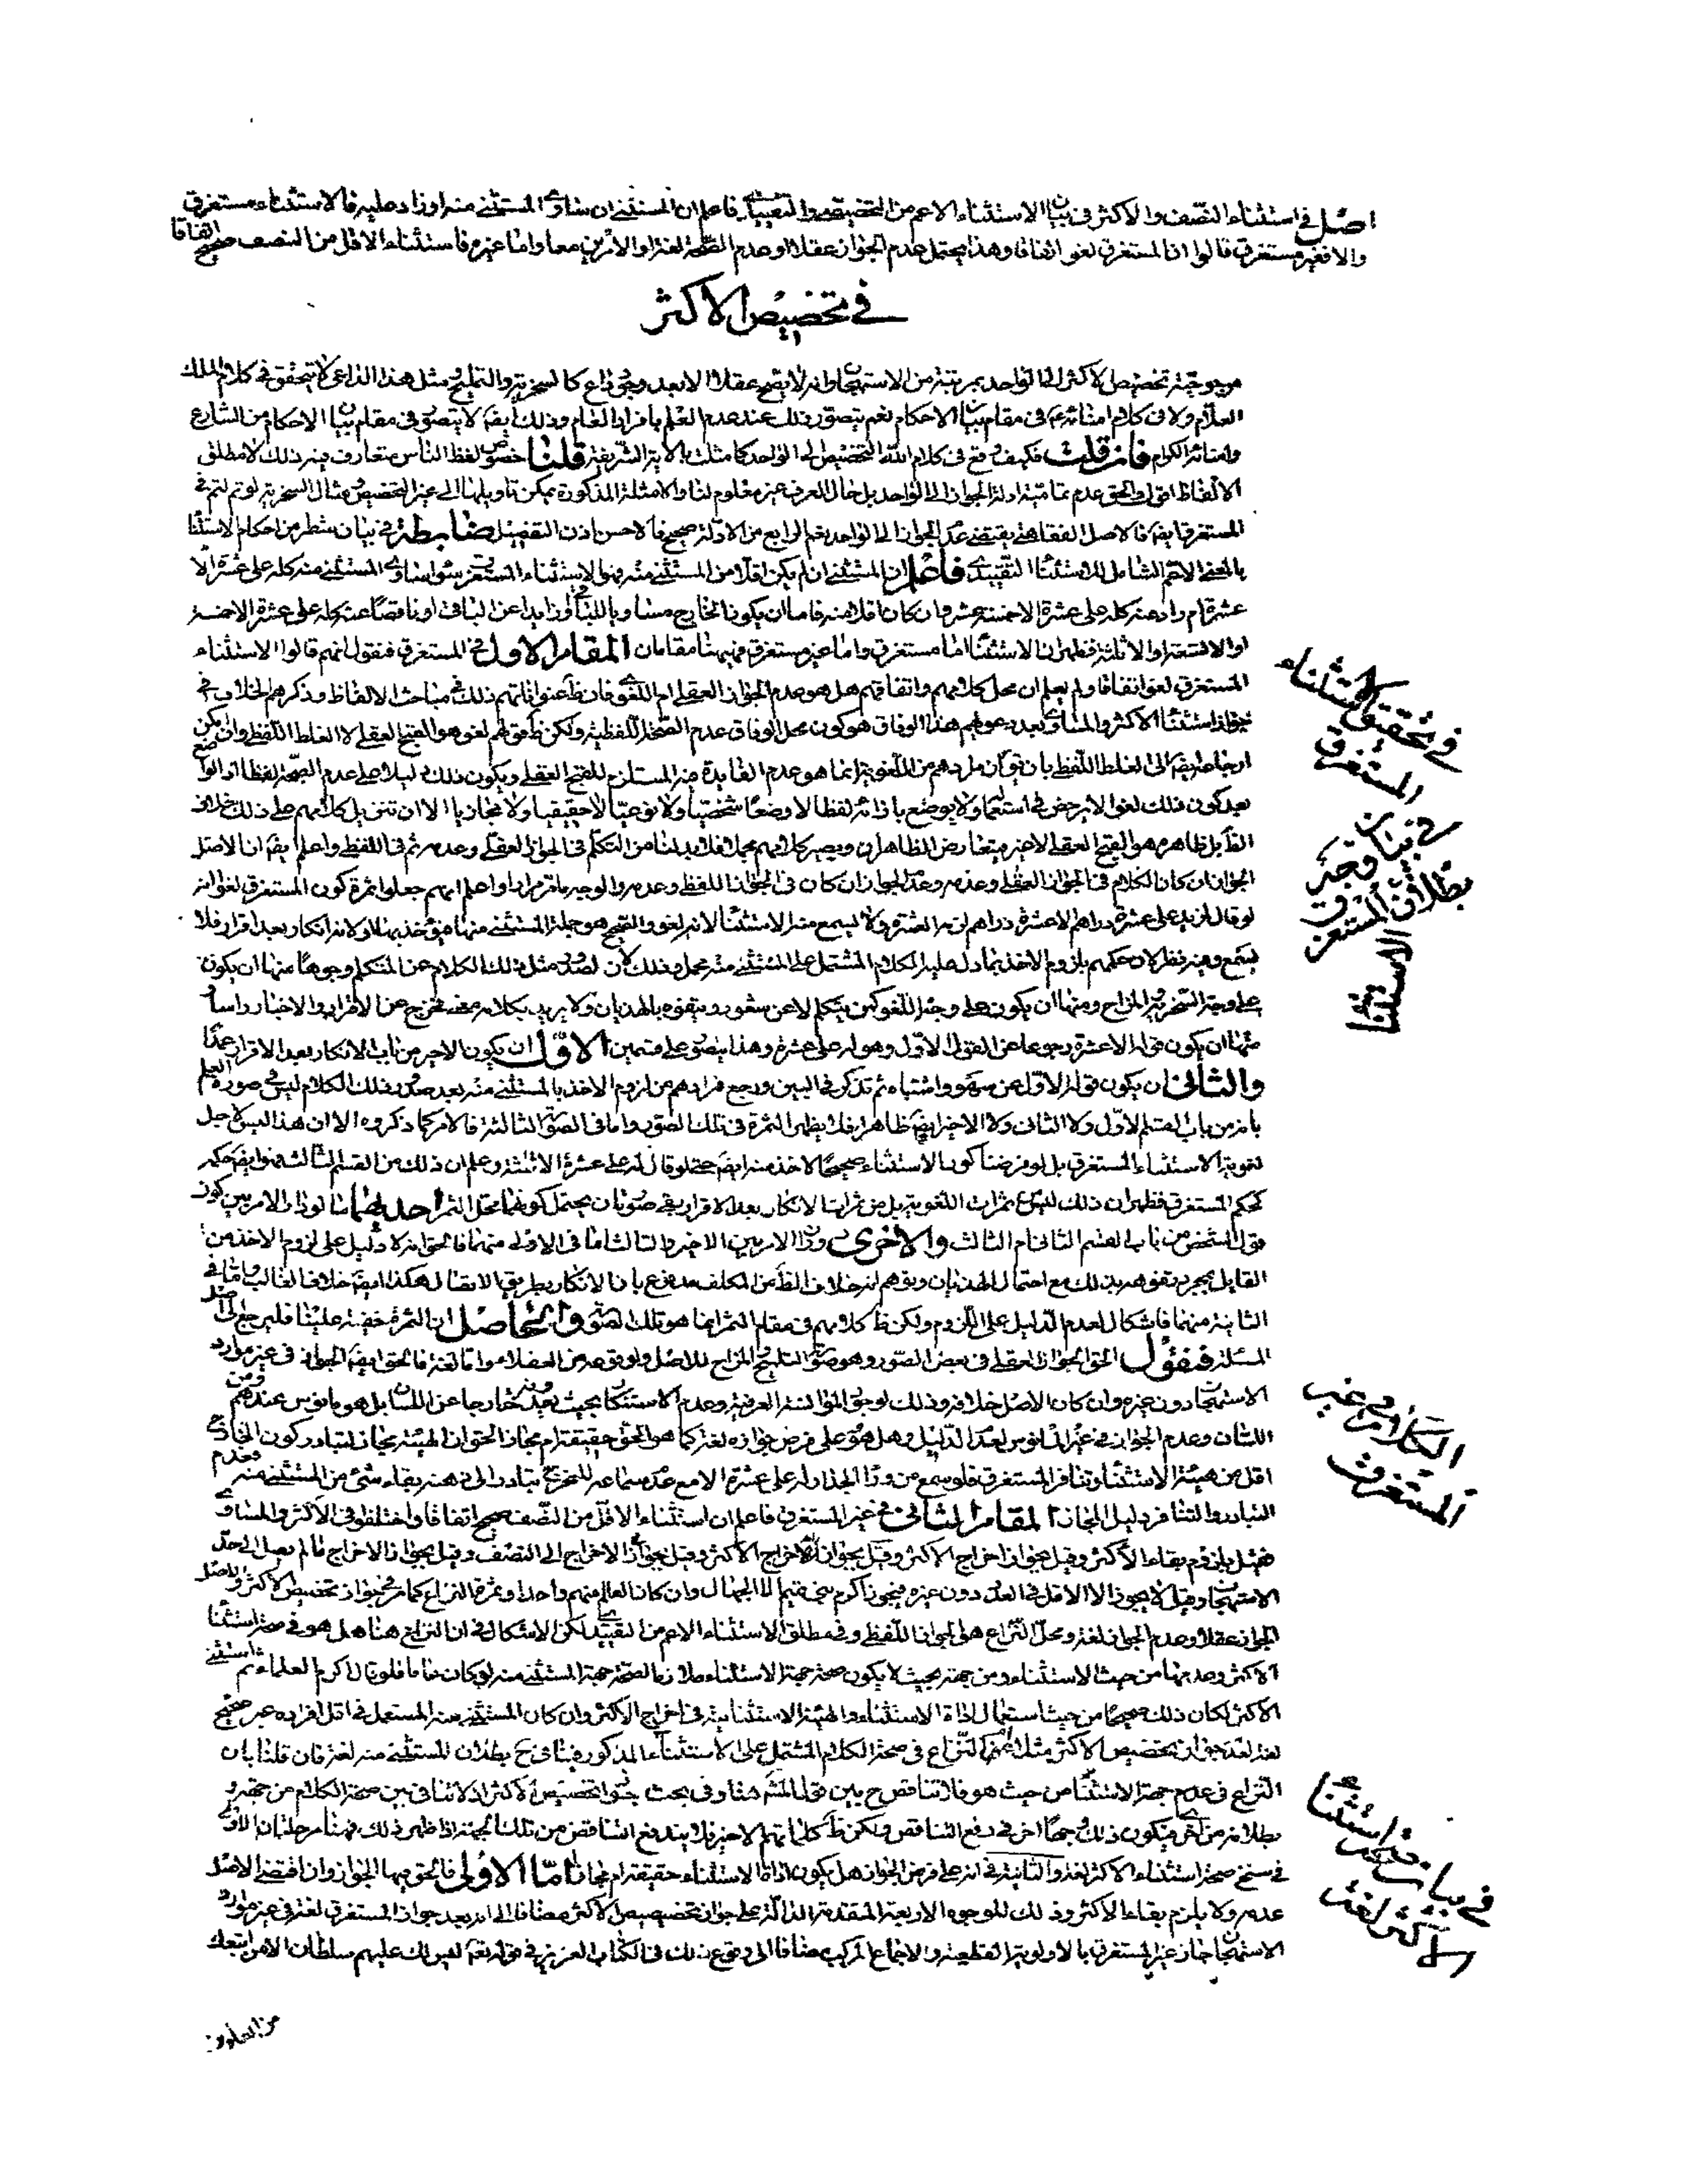 اصل في استثناء النصف والاكثر في بيان الاستثناء الاعم من التخصيصي والتقييدي فاعلم ان المستثنى ان ساوى المستثنى منه او زاد عليه فالاستثناء مستغرق
والا فغير مستغرق قالوا ان المستغرق لغو اتفاقا وهذا يحتمل عدم الجواز عقلا او عدم الصحة لغة او الامرين معا واما غيره فاستثناء الاقل من النصف صحيح اتفاقا
في تخصيص الاكثر
مرجوحية تخصيص الاكثر الى الواحد بمرتبة من الاستهجان وانه لا يقبح عقلا الا بعد وجود داع كالسخرية والتمليح ومثل هذا الداعي لا يتحقق في كلام الملك
العلام ولا في كلام امنائه في مقام بيان الاحكام نعم يتصور ذلك عند عدم العلم بافراد العام وذلك ايضا لا يتصور في مقام بيان الاحكام من الشارع
وامنائه الكرام فان قلت فكيف وقع في كلام الله التخصيص الى الواحد كما مثلت بالاية الشريفة قلنا خصوص لفظ الناس متعارف فيه ذلك لا مطلق
الالفاظ والحق عدم تمامية ادلة الجواز الى الواحد بل حال العرف غير معلوم لنا والامثلة المذكورة يمكن تاويلها الى غير التخصيص ومثال السخرية لو تم لتم في
المستغرق ايضا فالاصل الفقاهتي يقتضي عدم الجواز الى الواحد نعم الرابع من الادلة صحيح فالاحسن اذن التفصيل ضابطة في بيان شطر من احكام الاستثناء
بالمعنى الاعم الشامل للاستثناء التقييدي فاعلم ان المستثنى ان لم يكن اقل من المستثنى منه فهو الاستثناء المستغرق سواء ساوى المستثنى منه كله علي عشرة الا
عشرة ام زاد عنه كله علي عشرة الا خمسة عشر وان كان اقل منه فاما ان يكون الخارج مساويا للباقي او زايدا عن الباقي او ناقصا عنه كله علي عشرة الا خمسة
او الا تسعة او الا ثلثة فظهر ان الاستثناء اما مستغرق واما غير مستغرق فهيهنا مقامان المقام الاول في المستغرق فنقول انهم قالوا الاستثناء
المستغرق لغو اتفاقا ولم يعلم ان محل كلامهم واتفاقهم هل هو عدم الجواز العقلي ام اللغوي فان ظ عنوانهم ذلك في مباحث الالفاظ وذكرهم الخلاف في
جواز استثناء الاكثر والمساوي بعد دعويهم هذا الوفاق هو كون محل الوفاق عدم الصحة اللفظية ولكن ظ قولهم لغو هو القبح العقلي لا الغلط اللفظي وان يمكن
بعد كون ذلك لغوا
القابل ظاهره هو القبح العقلي لا غير فيتعارض الظاهران ويصير كلامهم مجملا فلابد لنا من التكلم في الجواز العقلي وعدمه ثم في اللفظي واعلم ايضا ان الاصل
الجواز ان كان الكلام في الجواز العقلي وعدمه وعدم الجواز ان كان في الجواز اللفظي وعدمه والوجه ما مر مرارا واعلم انهم جعلوا ثمرة كون المستغرق لغوا انه
لو قال لزيد علي عشرة دراهم الا عشرة دراهم لزمه العشرة ولا يسمع منه الاستثناء لانه لغو والقبيح هو جملة المستثنى منها فيؤخذ بها ولانه انكار بعد اقرار فلا
يسمع وفيه نظر لان حكمهم بلزوم الاخذ بما دل عليه الكلام المشتمل على المستثنى منه محمل وذلك لان لصدور مثل ذلك الكلام عن المتكلم وجوها منها ان يكون
على وجه السخرية والمزاح ومنها ان يكون على وجه اللغو كمن يتكلم لا عن شعور ويتفوه بالهذيان ولا يريد بكلامه معنى فخرج عن الاقرار والاخبار راسا و
منها ان يكون قوله الا عشرة رجوعا عن القول الاول وهو له علي عشرة وهذا يتصور على قسمين الاول ان يكون الاخير من باب الانكار بعد الاقرار عمدا
والثاني ان يكون قوله الاول عن سهو واشتباه ثم تذكر في البين ورجع فمرادهم من لزوم الاخذ بالمستثنى منه بعد صدور ذلك الكلام ليس في صورة العلم
بانه من باب القسم الاول ولا الثاني ولا الاخير ايضا ظاهرا فلا يظهر الثمرة في تلك الصور واما في الصورة الثالثة فالامر كما ذكروه الا ان هذا ليس لاجل
لغوية الاستثناء المستغرق بل لو فرضنا كون الاستثناء صحيحا لاخذ منه ايضا حتى لو قال له علي عشرة الا ثلثة وعلم ان ذلك من القسم الثالث فهو ايضا حكمه
كحكم المستغرق فظهر ان ذلك ليس من ثمرات اللغوية بل من ثمرات الانكار بعد الاقرار بقي صورتان يحتمل كونهما محل الثمر احديهما ما لو دار الامر بين كون
قول الشخص من باب القسم الثاني ام الثالث والاخرى دوران الامر بين الاخير والثالث اما في الاولى منهما فالحق انه لا دليل على لزوم الاخذ من
القايل بمجرد تفوهه بذلك مع احتمال الهذيان وتوهم انه خلاف الظ من المكلف مدفوع بان الانكار بطريق الاتصال هكذا ايضا خلاف الغالب واما في
الثانية منهما فاشكال لعدم الدليل على اللزوم ولكن ظ كلامهم في مقام الثمر انما هو تلك الصور والحاصل ان الثمرة مخفية علينا فليرجع الى اصل
المسئلة فنقول الحق الجواز العقلي في بعض الصور وهو صورة التمليح والمزاح للاصل ولوقوعه من العقلاء واما لغة فالحق ايضا الجواز في غير موارد
الاستهجان دون غيره وان كان الاصل خلافه وذلك لوجود الموانسة العرفية وعدم الاستنكار بحيث يعد خارجا عن اللسان بل هو مانوس عندهم
اللسان وعدم الجواز في غير المانوس لعدم الدليل وهل هو على فرض جوازه لغة كما هو الحق حقيقة ام مجاز الحق ان الهيئة مجاز لتبادر كون الخارج
اقل من هيئة الاستثناء وتنافر المستغرق فلو سمع من وراء الجدار له علي عشرة الا مع عدم سماعه للمخرج تبادر الى ذهنه بقاء شيء من المستثنى منه
التبادر والتنافر دليل المجاز المقام الثاني في غير المستغرق فاعلم ان استثناء الاقل من النصف صحيح اتفاقا واختلفوا في الاكثر والمساوي
فقيل بلزوم بقاء الاكثر وقيل بجواز اخراج الاكثر وقيل بجواز الاخراج الى النصف وقيل بجواز الاخراج ما لم يصل الى حد
الاستهجان وقيل لا يجوز الا الاقل في العدد دون غيره فيجوز اكرم بني تميم الا الجهال وان كان العالم منهم واحدا وثمرة النزاع كما مر في جواز تخصيص الاكثر والاصل
الجواز عقلا وعدم الجواز لغة ومحل النزاع هو الجواز اللفظي وفي مطلق الاستثناء الاعم من التقييدي لكن الاشكال في ان النزاع هنا هل هو في صحة استثناء
الاكثر وعدمها من حيث الاستثناء ومن جهته بحيث لا يكون صحة جهة الاستثناء ملازما لصحة جهة المستثنى منه لو كان عاما فلو قال اكرم العلماء ثم استثنى
الاكثر لكان ذلك صحيحا من حيث استعمال اداة الاستثناء والهيئة الاستثنائية في اخراج الاكثر وان كان المستثنى منه المستعمل في اقل افراده غير صحيح
لغة لعدم جواز تخصيص الاكثر مثلا ام النزاع في صحة الكلام المشتمل على الاستثناء المذكور فينافي ح بطلان المستثنى منه لغة فان قلنا بان
النزاع في عدم جهة الاستثناء من حيث هو فلا تناقض ح بين قول المشهور هنا وفي بحث جواز تخصيص الاكثر اذ لا تنافي بين صحة الكلام من جهة و
بطلانه من اخرى فيكون ذلك وجها اخر في دفع التناقض ولكن ظ كلماتهم الاخير فلا يندفع التناقض من تلك الجهة اذا ظهر ذلك فهنا مرحلتان الاولى
في سنخ صحة استثناء الاكثر لغة والثانية في انه على فرض الجواز هل يكون اداة الاستثناء حقيقة ام مجازا اما الاولى فالحق فيها الجواز وان اقتضى الاصل
عدمه ولا يلزم بقاء الاكثر وذلك للوجوه الاربعة المتقدمة الدالة على جواز تخصيص الاكثر مضافا الى انه بعد جواز المستغرق لغة في غير موارد
الاستهجان جاز غير المستغرق بالاولوية القطعية والاجماع المركب مضافا الى وقوع ذلك في الكتاب العزيز في قوله تعالى ليس لك عليهم سلطان الا من اتبعك
في تحقيق الاستثناء
المستغرق
في بيان وجه
بطلان المستغرق
الاستثناء
الكلام في غير
المستغرق
في بيان صحة استثناء
الاكثر لغة
من الغاوين